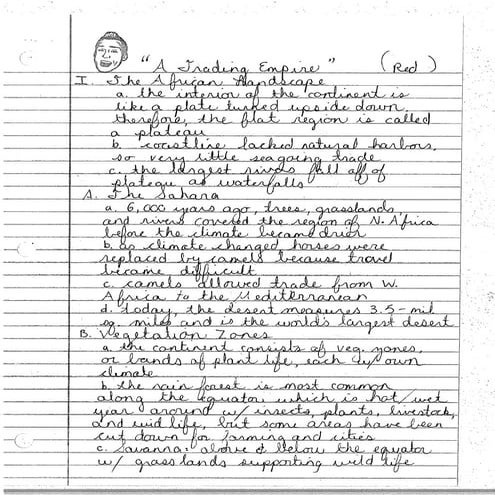 "A Trading Empire" (Red)
I. The African Landscape
a. the interior of the continent is
like a plate turned upside down,
therefore, the flat region is called
a plateau
b. coastline lacked natural harbors,
so very little seagoing trade
c. the largest rivers fall off of
plateau as waterfalls
A. The Sahara
a. 6,000 years ago, trees, grasslands,
and rivers covered the region of N. Africa
before the climate became drier
b. as climate changed, horses were
replaced by camels because travel
became difficult
c. camels allowed trade from W.
Africa to the Mediterranean
d. today, the desert measures 3.5-mil
sq. miles and is the world's largest desert
B. Vegetation Zones
a. the continent consists of veg. zones,
or bands of plant life, each w/ own
climate
b. the rain forest is most common
along the equator which is hot/wet
year around w/ insects, plants, livestock,
and wild life, but some areas have been
cut down for farming and cities
c. Savanna: above & below the equator
w/ grasslands supporting wild life